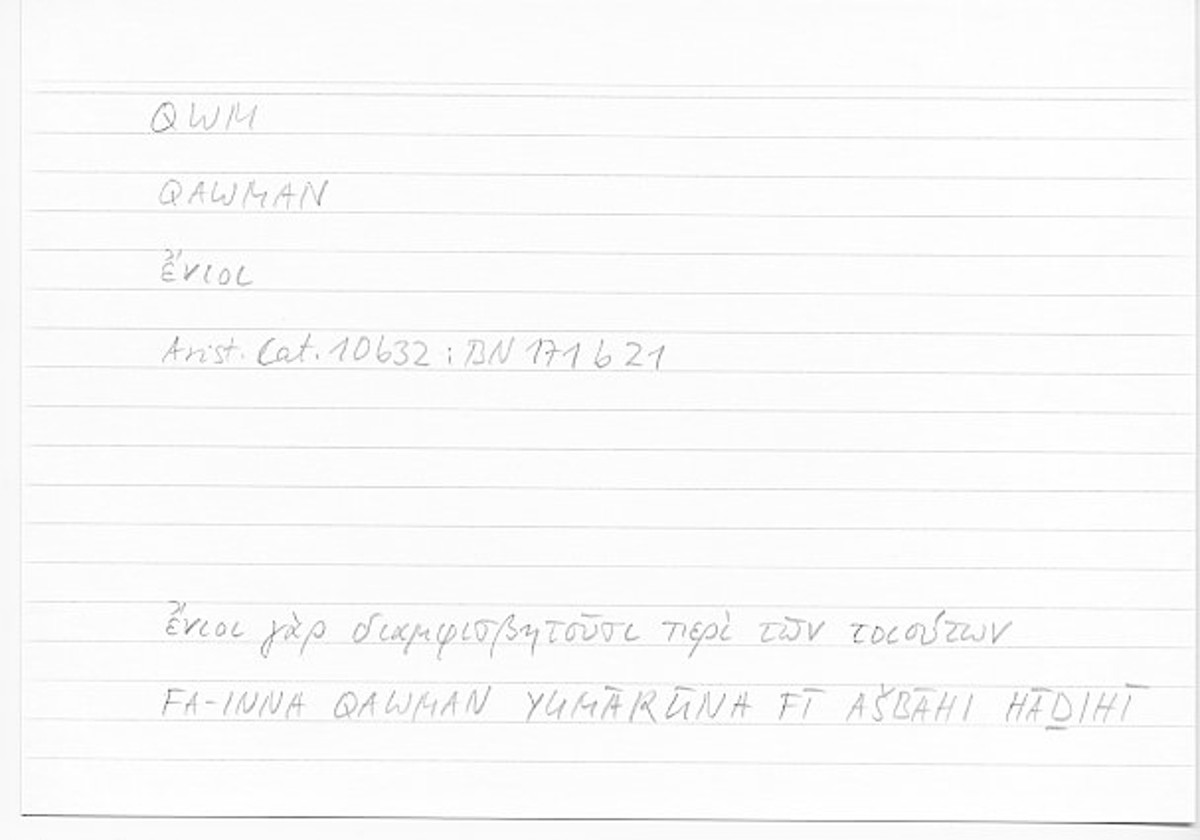 QWM
QAWMAN
ἔνιοι
Arist. Cat. 10b32 ; BN 171b21
ἔνιοι γὰρ διαμφισβητοῦσι περὶ τῶν τοιούτων
FA-INNA QAWMAN YUMĀRŪNA FĪ AŠBĀHI HĀḎIHĪ